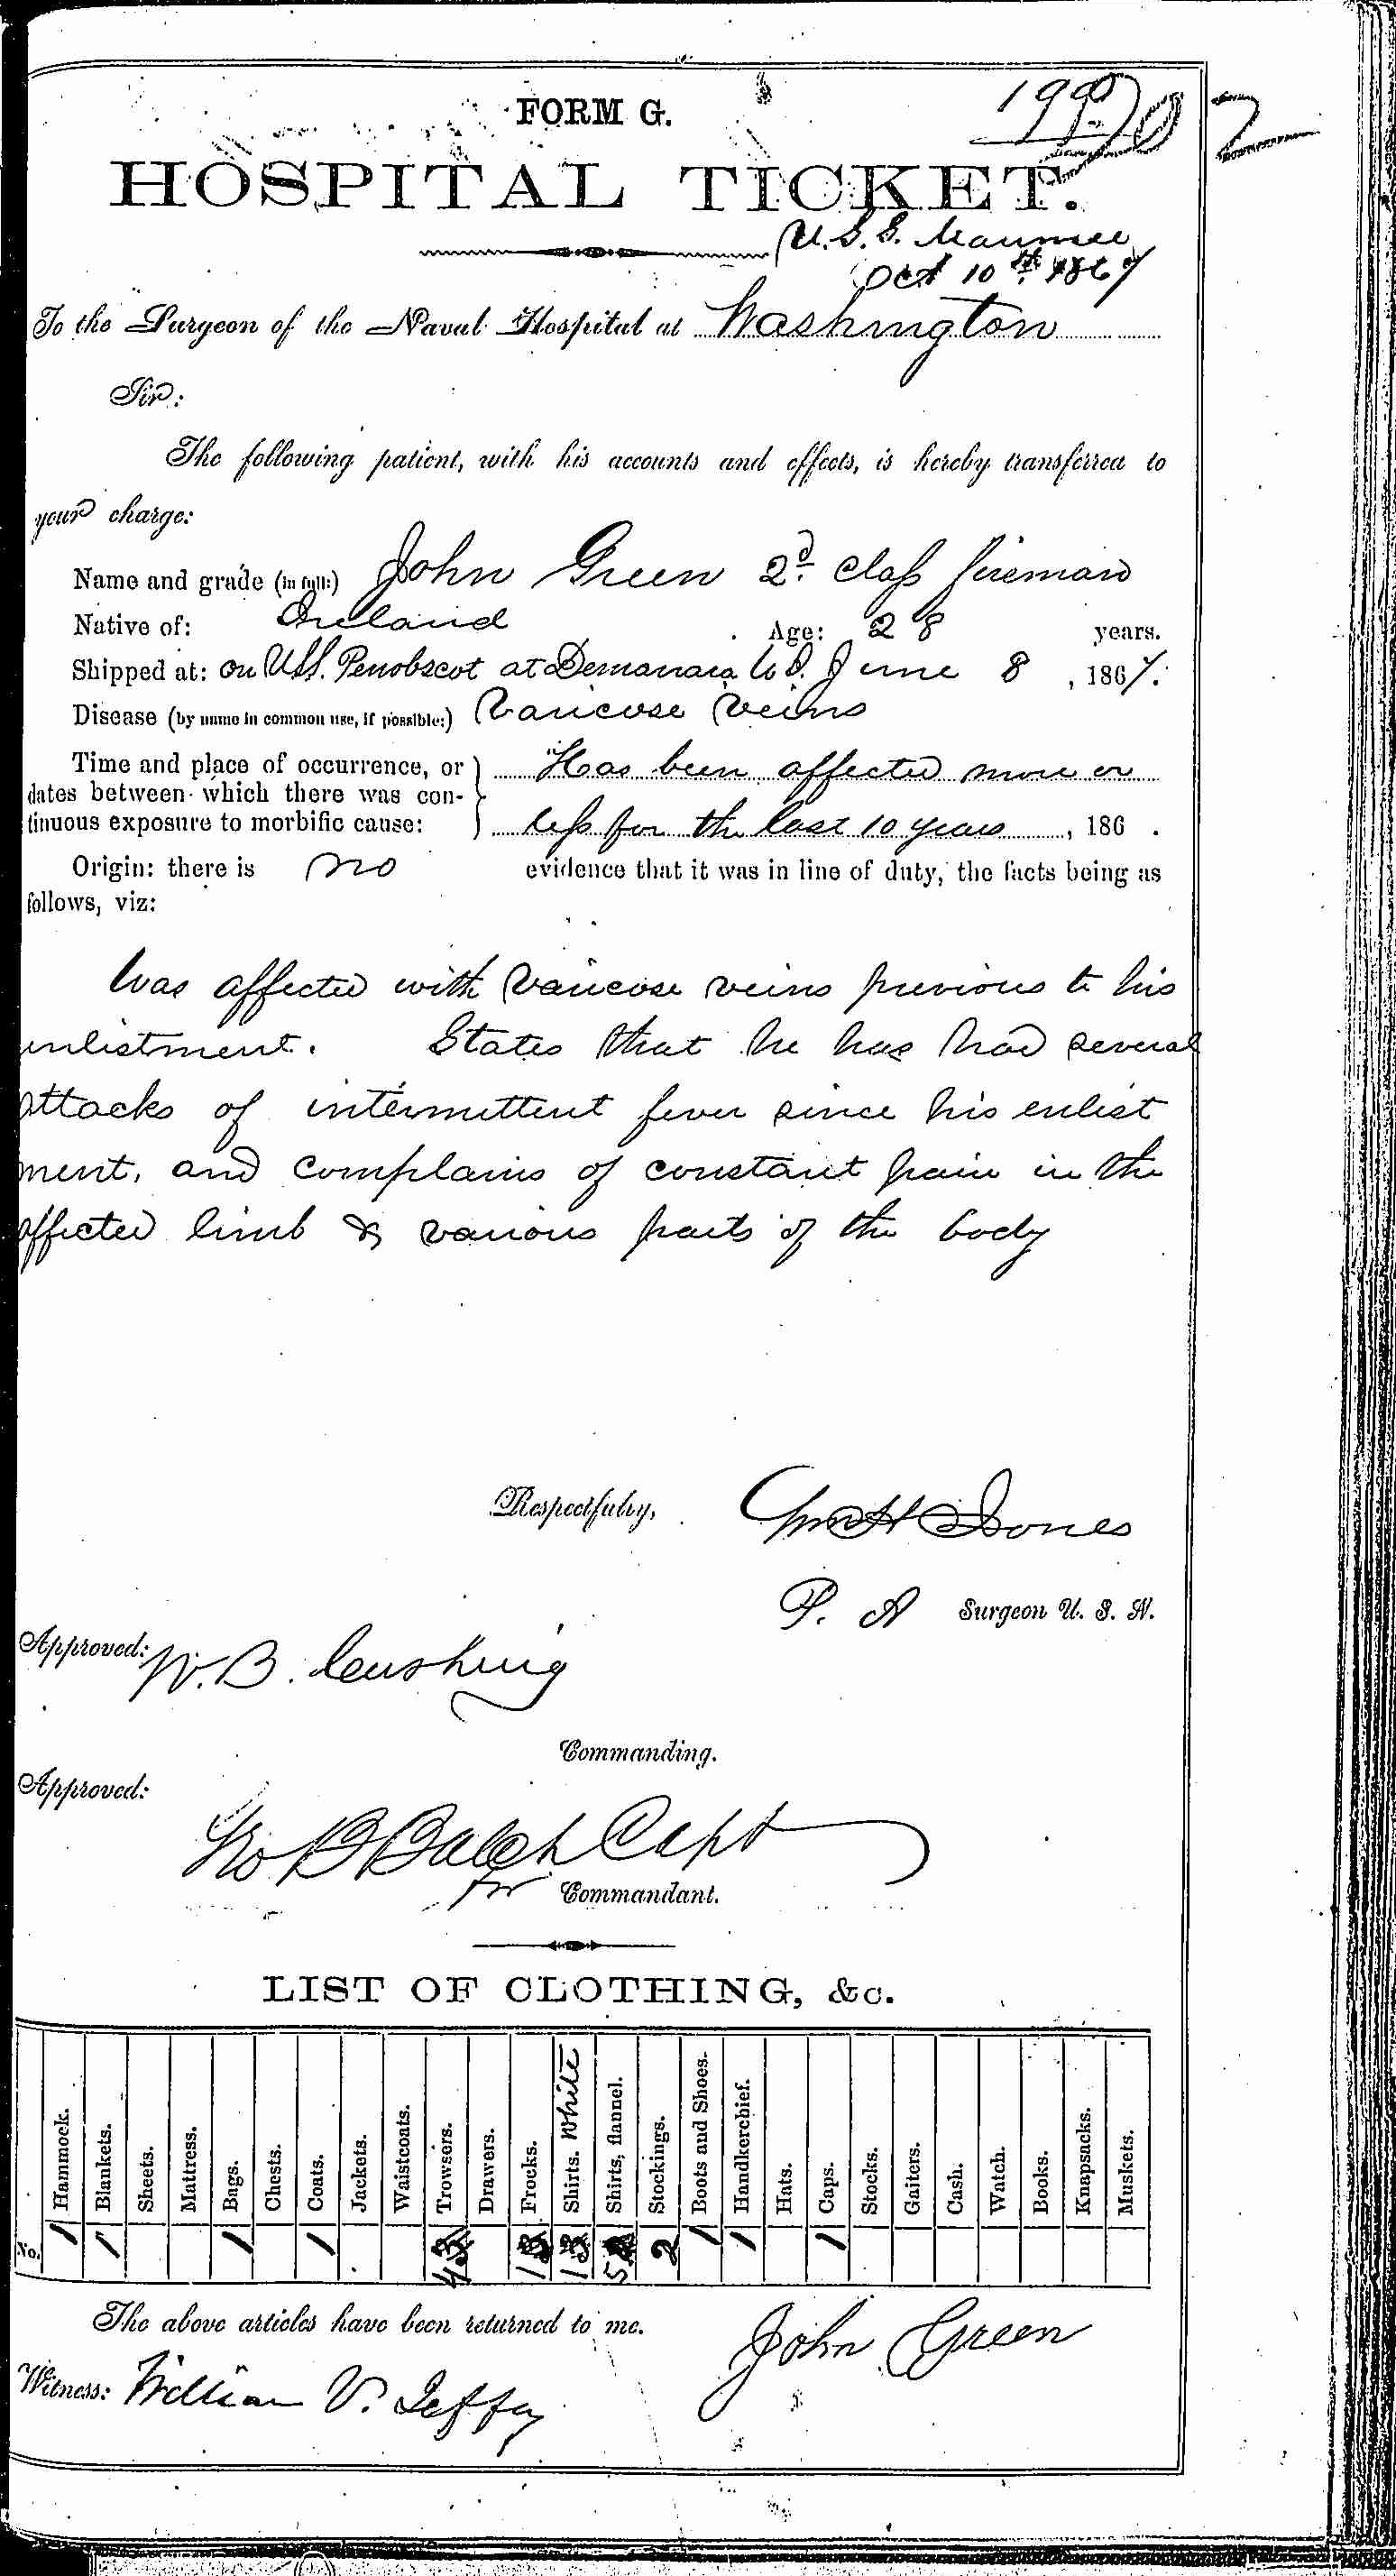 FORM G.
202
HOSPITAL TICKET.
U.S.S. Maumee
Oct 10th. 1867
To the Surgeon of the Naval Hospital at Washington
Sir:
The following patient, with his accounts and effects, is hereby transferred to
your charge:
Name and grade (in full:) John Green 2d. class fireman
Native of: Ireland Age: 28 years.
Shipped at: on USS. Penobscot at Demarara June 8, 1867.
Disease (by name in common use, if possible:) Varicose Veins
Time and place of occurrence, or Has been affected more or
dates between which there was con-
tinuous exposure to morbific cause: less for the last 10 years, 186 .
Origin: there is no evidence that it was in line of duty, the facts being as
follows, viz:
Was affected with Varicose veins previous to his
enlistment. States that he has had several
attacks of intermittent fever since his enlist
ment, and complains of constant pain in the
affected limb & various parts of the body
Respectfully, Wm H Jones
P. A Surgeon U. S. N.
Approved: W. B. Cushing
Commanding.
Approved:
Geo B Balch Capt
for Commandant.
LIST OF CLOTHING, &c.
Hammock. Blankets. Sheets. Mattress. Bags. Chests. Coats. Jackets. Waistcoats. Trowsers. Drawers. Frocks. Shirts. White Shirts, flannel. Stockings. Boots and Shoes. Handkerchief. Hats. Caps. Stocks. Gaiters. Cash. Watch. Books. Knapsacks. Muskets.
No. 1 1 1 1 4 1 1 5 2 1 1 1
The above articles have been returned to me. John Green
Witness: William V.